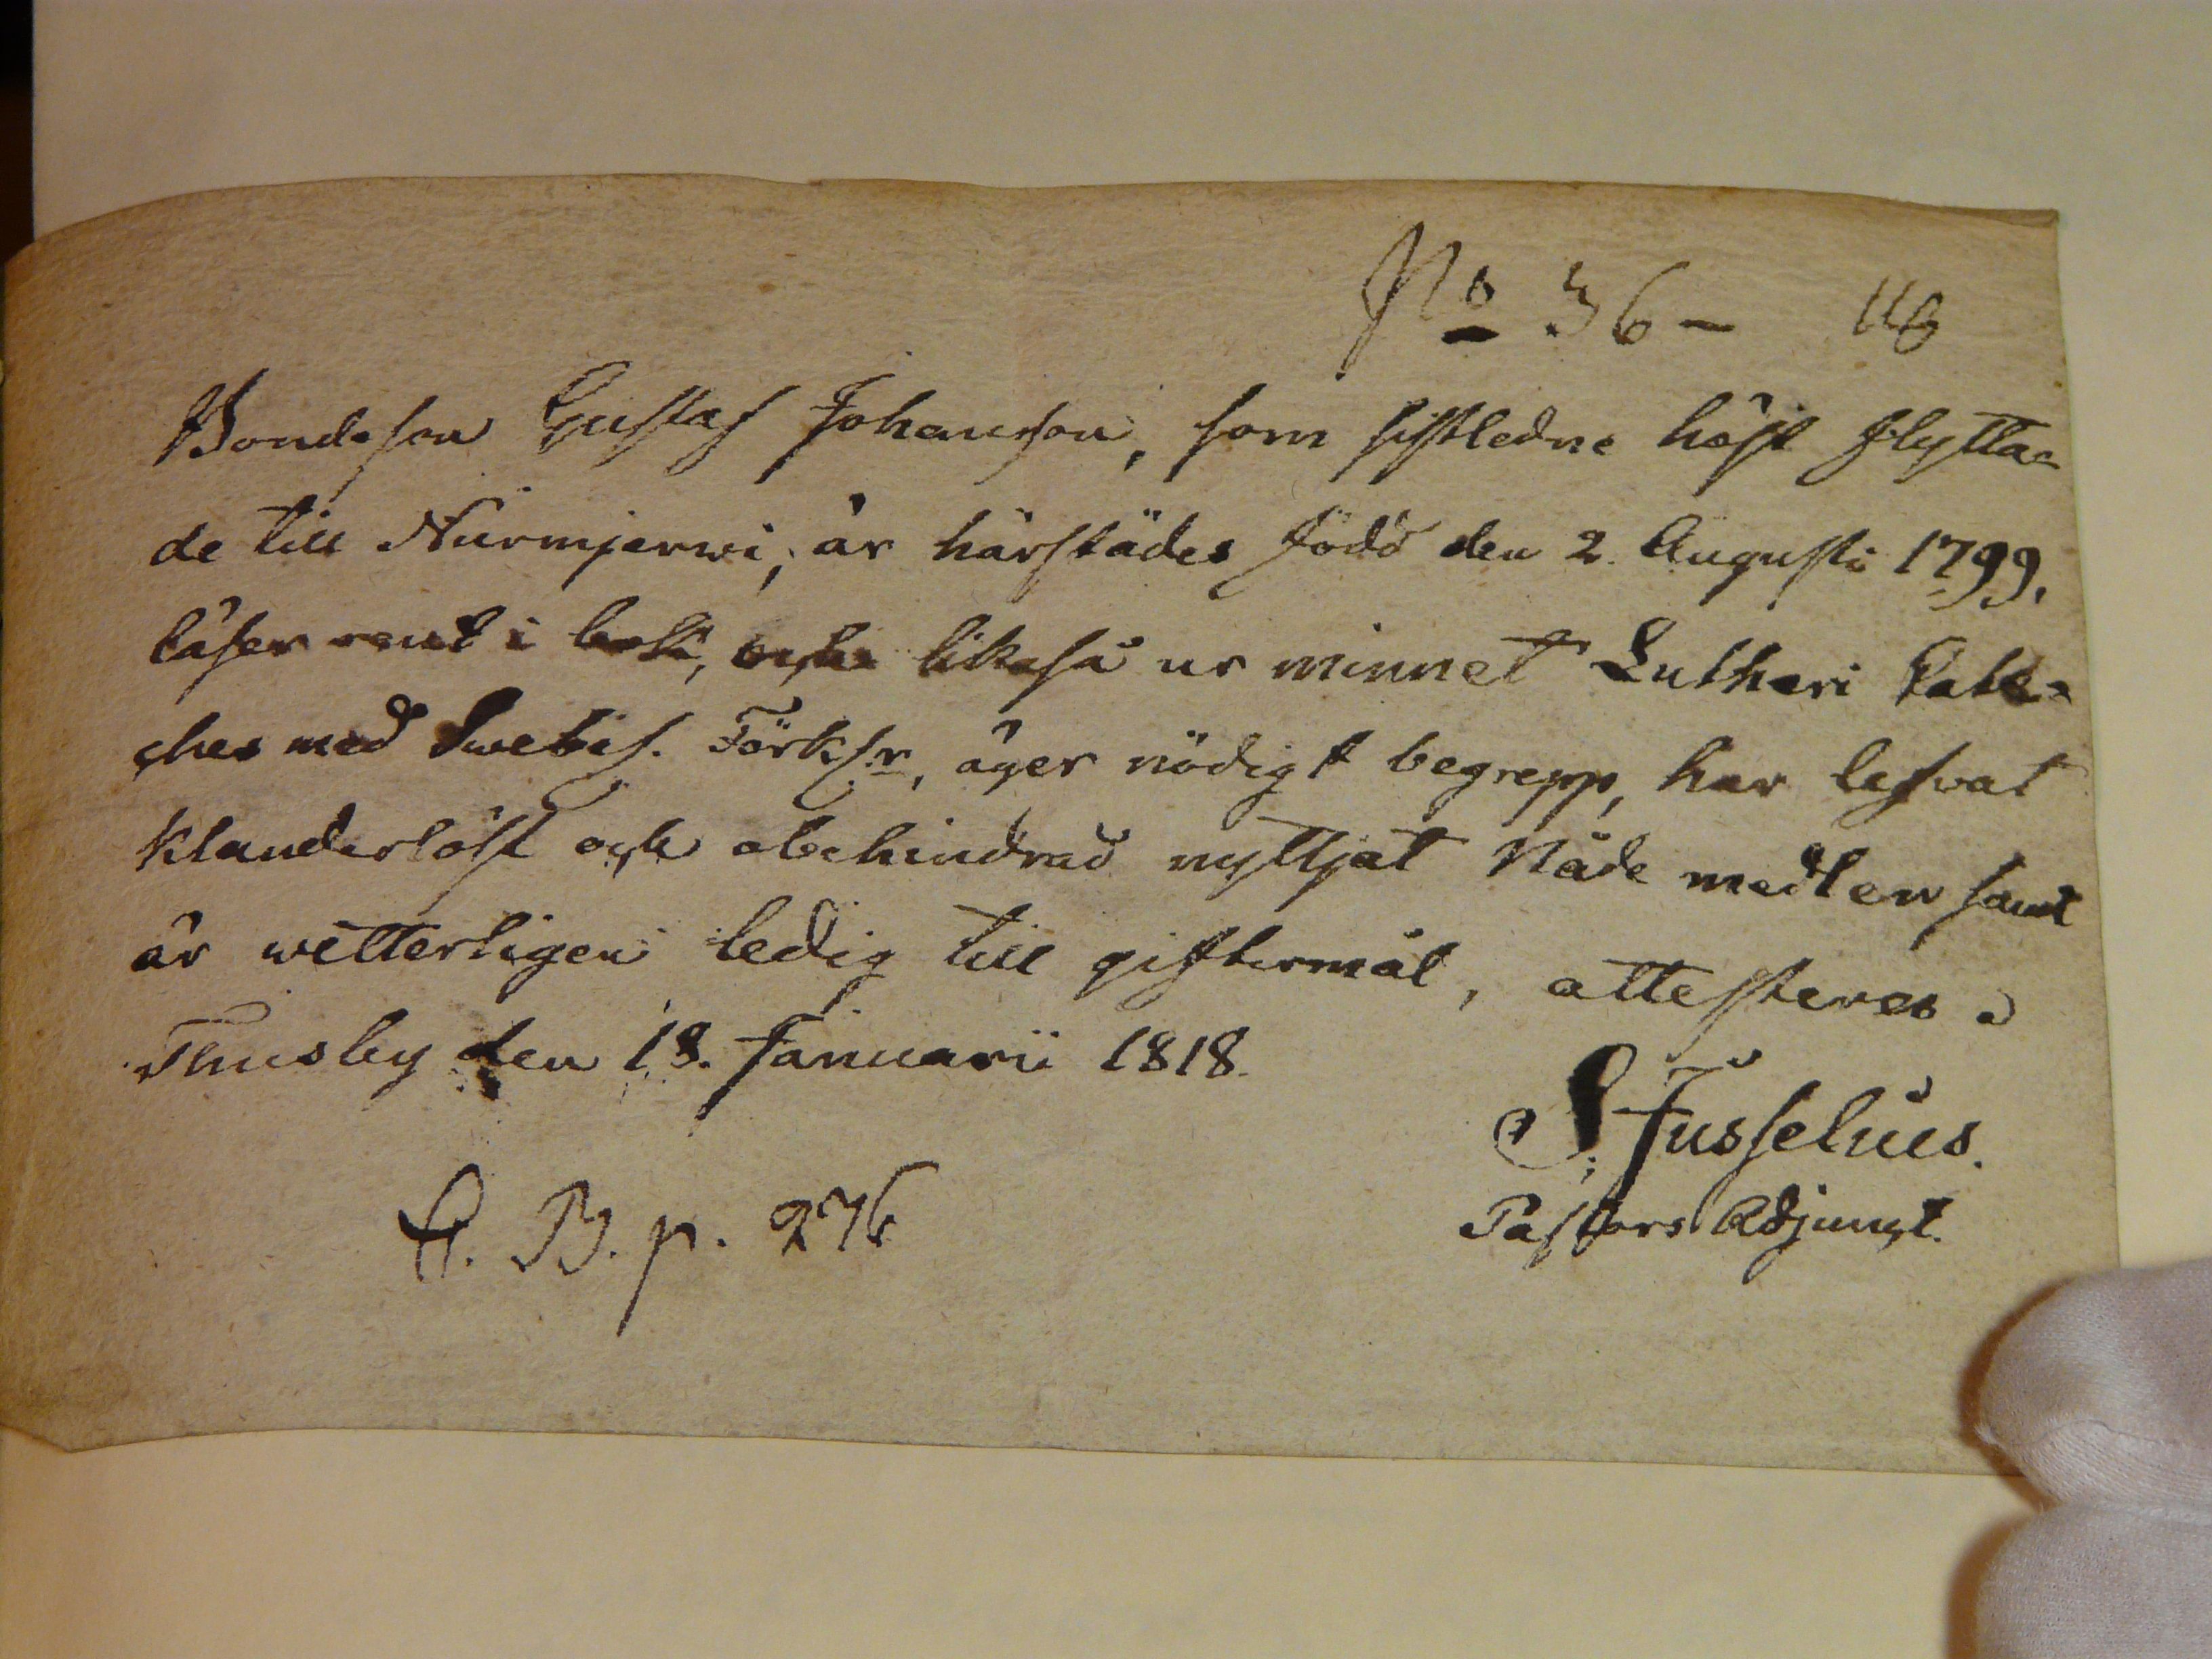 No 36 -
Bondeson Gustaf Johansson, som sistledne höst flytta-
de till Nurmjerwi, är härstädes född den 2. Augusti 1799,
läser rent i bok, och likaså ur minnet Lutheri Cate-
ches med Swebis. Förkl:r, äger nödigt begrepp, har lefvat
klanderlöst och obehindrad nyttjat Nåde medlen samt
är wetterligen ledig till giftermål, attesteres
Thusby den 13. Januarii 1818.
S. Jusselius.
Pastors Adjunct.
H. B. p. 276